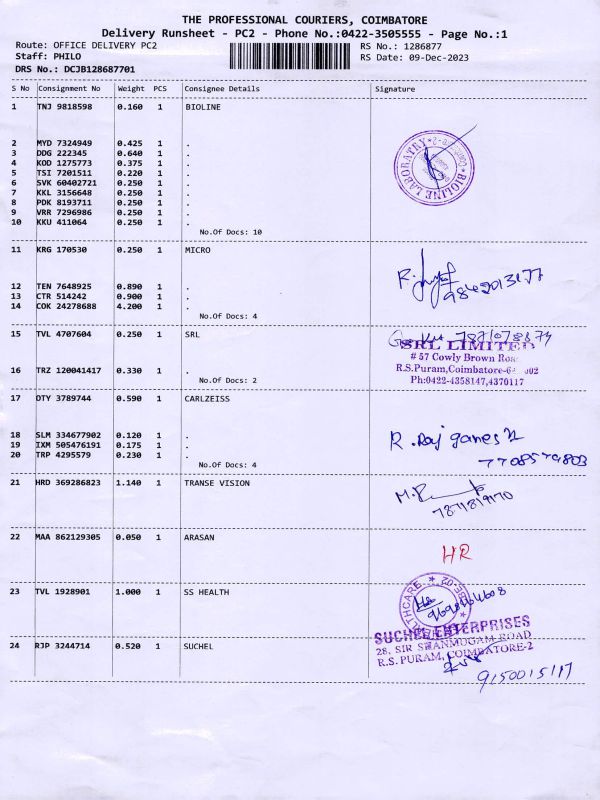 THE PROFESSIONAL COURIERS, COIMBATORE
Delivery Runsheet - PC2 - Phone No.:0422-3505555 - Page No.:1
Route: OFFICE DELIVERY PC2 RS No.: 1286877
Staff: PHILO RS Date: 09-Dec-2023
DRS No.: DCJB128687701
S No Consignment No Weight PCS Consignee Details Signature
1 TNJ 9818598 0.160 1 BIOLINE
2 MYD 7324949 0.425 1 .
3 DDG 222345 0.640 1 .
4 KOD 1275773 0.375 1 .
5 TSI 7201511 0.220 1 .
6 SVK 60402721 0.250 1 .
7 KKL 3156648 0.250 1 .
8 PDK 8193711 0.250 1 .
9 VRR 7296986 0.250 1 .
10 KKU 411064 0.250 1 .
No.Of Docs: 10
BIOLINE LABORATRY
11 KRG 170530 0.250 1 MICRO
12 TEN 7648925 0.890 1 .
13 CTR 514242 0.900 1 .
14 COK 24278688 4.200 1 .
No.Of Docs: 4
15 TVL 4707604 0.250 1 SRL
SRL LIMITED
# 57 Cowly Brown Road
R.S.Puram, Coimbatore-
Ph:0422-4358147,4370117
16 TRZ 120041417 0.330 1 .
No.Of Docs: 2
17 OTY 3789744 0.590 1 CARLZEISS
18 SLM 334677902 0.120 1 .
19 IXM 505476191 0.175 1 .
20 TRP 4295579 0.230 1 .
No.Of Docs: 4
R. Raj ganesh
7708579803
21 HRD 369286823 1.140 1 TRANSE VISION
7871819170
22 MAA 862129305 0.050 1 ARASAN
HR
23 TVL 1928901 1.000 1 SS HEALTH
24 RJP 3244714 0.520 1 SUCHEL
SUCHEL ENTERPRISES
28, SIR SHANMUGAM ROAD
R.S. PURAM, COIMBATORE-2
9150015117